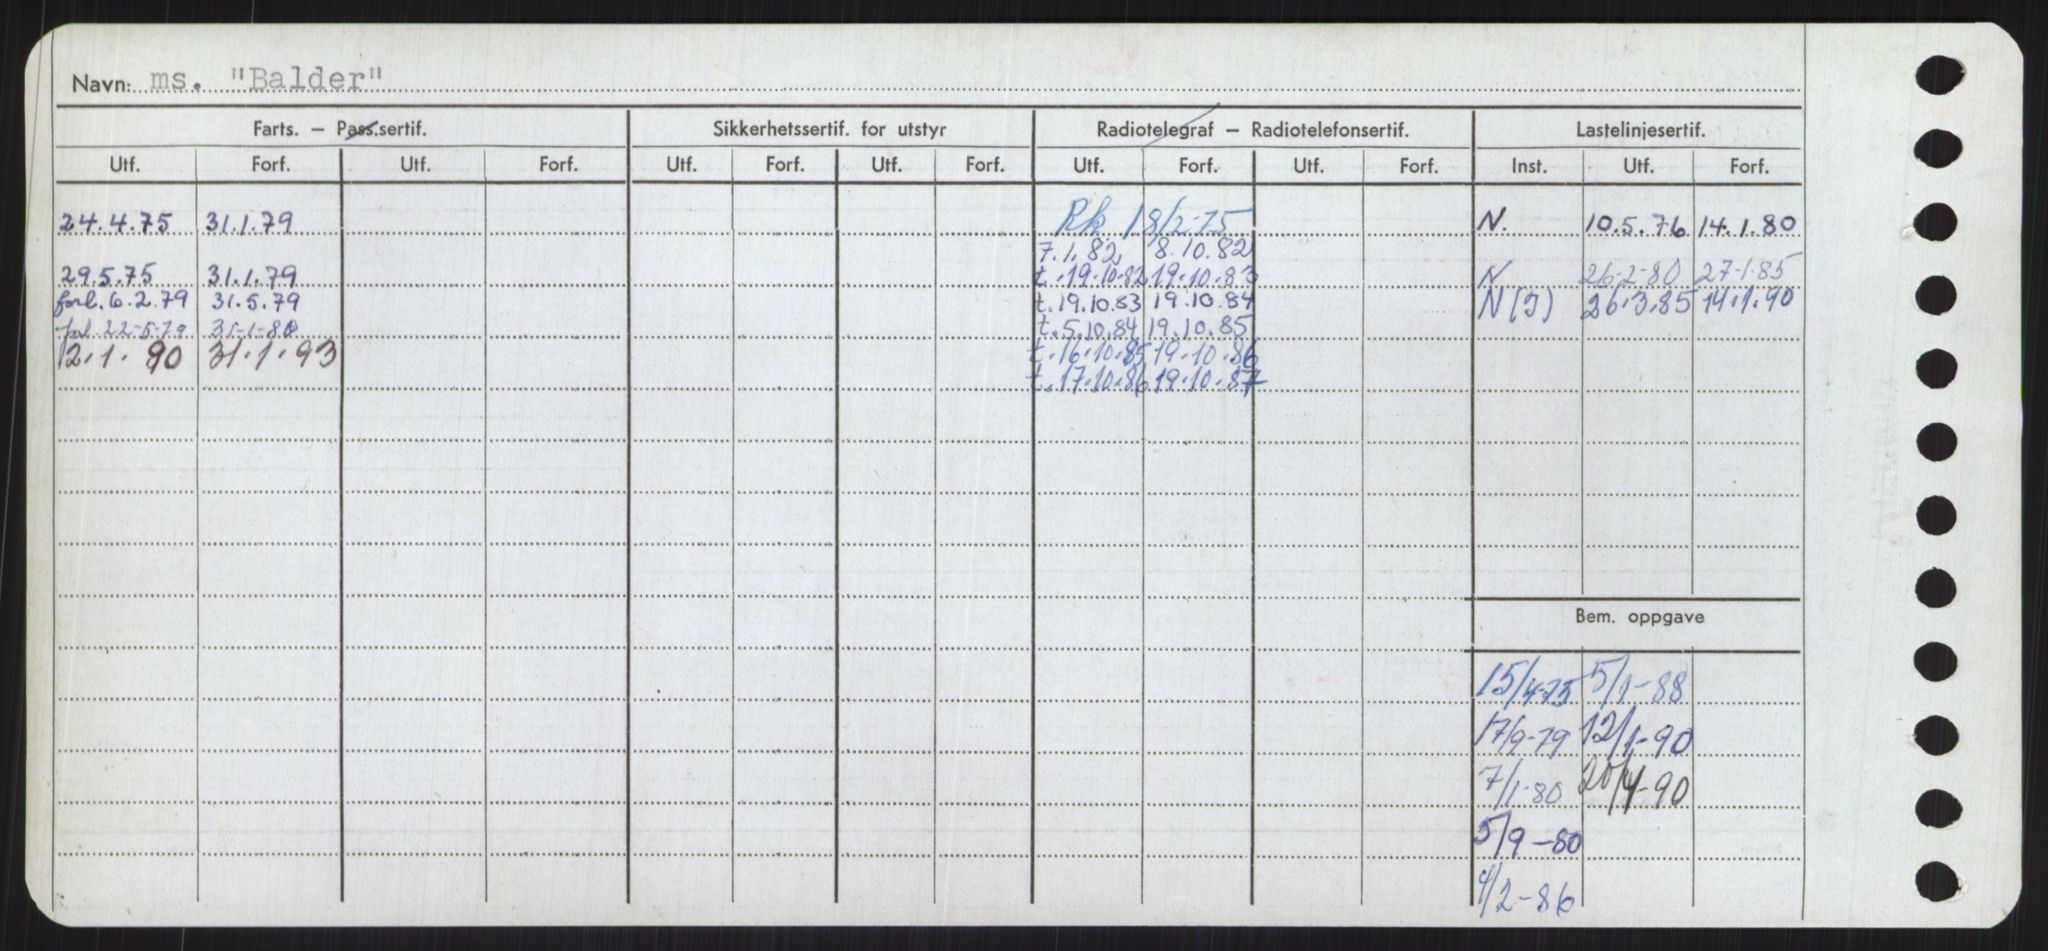 Navn: ms. "Balder"
Farts. – Pass.sertif. Sikkerhetssertif. for utstyr Radiotelegraf – Radiotelefonsertif. Lastelinjesertif.
Utf. Forf. Utf. Forf. Utf. Forf. Utf. Forf. Utf. Forf. Utf. Forf. Inst. Utf. Forf.
24.4.75 31.1.79 Rk 18/2-75 N. 10.5.76 14.1.80
7.1.82 8.10.82
29.5.75 31.1.79 t.19.10.82 19.10.83 N 26-2-80 27-1-85
forl. 6.2.79 31.5.79 t.19.10.83 19.10.84 N(I) 26.3.85 14.1.90
22-5-79 31-1-80 t.5.10.84 19.10.85
12.1.90 31.1.93 t.16.10.85 19.10.86
t.17.10.86 19.10.87
Bem. oppgave
15/4-75 5/1-88
17/9-79 12/1-90
7/1-80 20/4-90
5/9-80
4/2-86